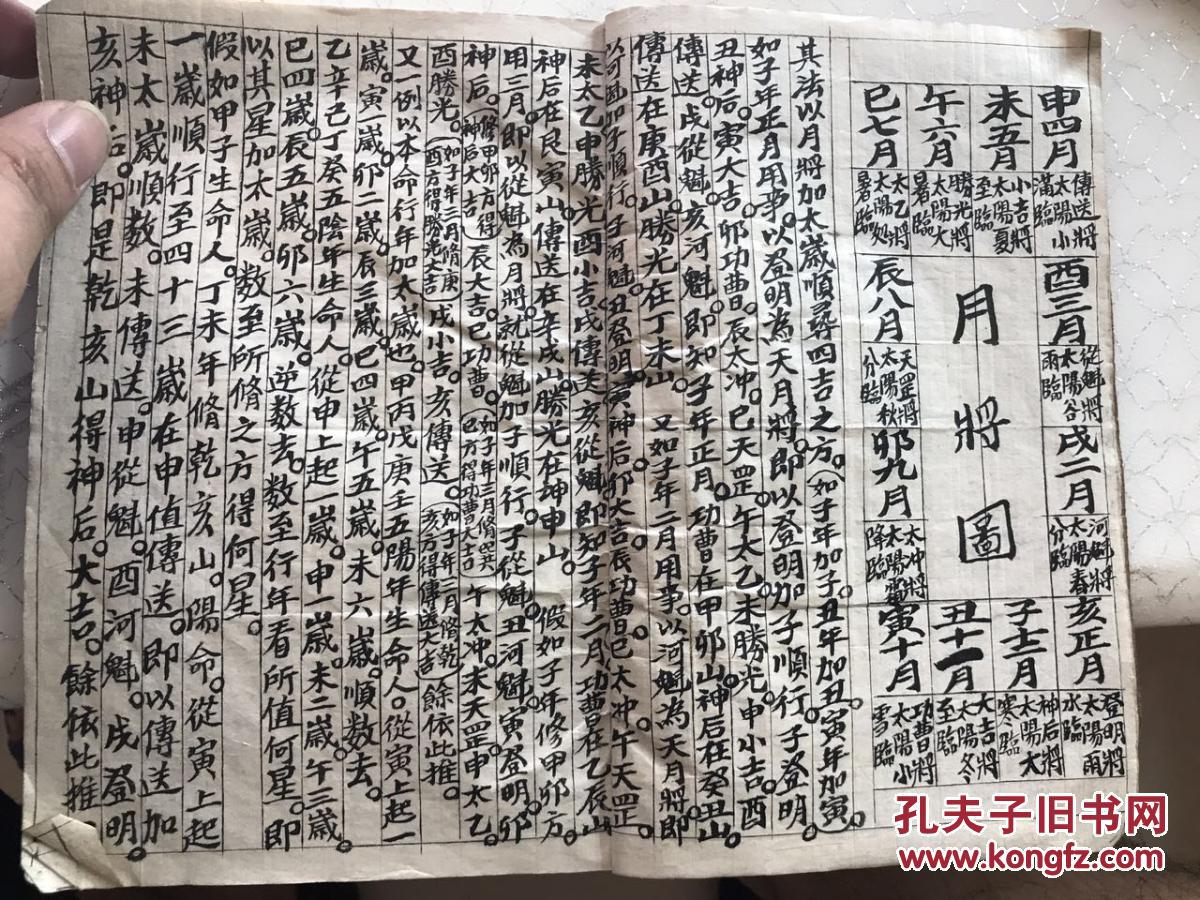 月將圖
申四月
傳送將太陽小滿臨
未五月
小吉將太陽夏至臨
午六月
勝光將太陽大暑臨
巳七月
太乙將太陽処暑臨
酉三月
從魁將太陽谷雨臨
辰八月
天罡將太陽秋分臨
戌二月
河魁將太陽春分臨
卯九月
太冲將太陽霜降臨
亥正月
登明將太陽雨水臨
子十二月
神后將太陽大寒臨
丑十一月
大吉將太陽冬至臨
寅十月
功曹將太陽小雪臨
其法以月將加太歲順尋四吉之方。(如子年加子。丑年加丑。寅年加寅。)
如子年正月用事。以登明為天月將。即以登明加子順行。子登明。
丑神后。寅大吉。卯功曹。辰太冲。巳天罡。午太乙。未勝光。申小吉。酉
傳送。戌從魁。亥河魁。即知子年正月。功曹在甲卯山。神后在癸丑山。
傳送在庚酉山。勝光在丁未山。又如子年二月用事。以河魁為天月將。即
以河魁加子順行。子河魁。丑登明。寅神后。卯大吉。辰功曹。巳太冲。午天罡。
未太乙。申勝光。酉小吉。戌傳送。亥從魁。即知子年二月。功曹在乙辰山。
神后在艮寅山。傳送在辛戌山。勝光在坤申山。假如子年修甲卯方。
用三月。即以從魁為月將。就從魁加子順行。子從魁。丑河魁。寅登明。卯
神后。(修甲卯方得神后大吉)辰大吉。巳功曹。(如子年三月脩巽巳方得功曹大吉)午太冲。未天罡。申太乙。
酉勝光。(如子年三月脩庚酉方得勝光大吉)戌小吉。亥傳送。(如子年三月脩乾亥方得傳送大吉)餘依此推。
又一例以本命行年加太歲也。甲丙戊庚壬五陽年生命人。從寅上起一
歲。寅一歲。卯二歲。辰三歲。巳四歲。午五歲。未六歲。順数去。
乙辛己丁癸五陰年生命人。從申上起一歲。申一歲。未二歲。午三歲。
巳四歲。辰五歲。卯六歲。逆数去。数至行年看所值何星。即
以其星加太歲。数至所脩之方得何星。
假如甲子生命人。丁未年脩乾亥山。陽命。從寅上起
一歲順行至四十三歲在申值傳送。即以傳送加
未太歲順数。未傳送。申從魁。酉河魁。戌登明。
亥神后。即是乾亥山得神后。大吉。餘依此推
孔夫子旧书网
www.kongfz.com